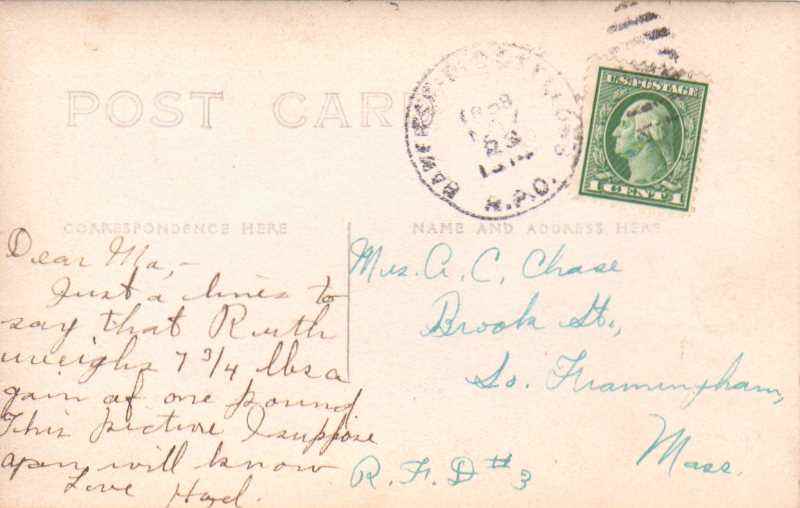 POST CARD
U.S. POSTAGE
1 CENT 1
R.P.O.
CORRESPONDENCE HERE
NAME AND ADDRESS HERE
Dear Ma,-
Just a lines to
say that Ruth
weighs 7 3/4 lbs a
gain of one pound
This picture I suppose
you will know
Love Hazel.
Mrs. A. C. Chase
Brook St.,
So. Framingham,
Mass.
R. F. D # 3